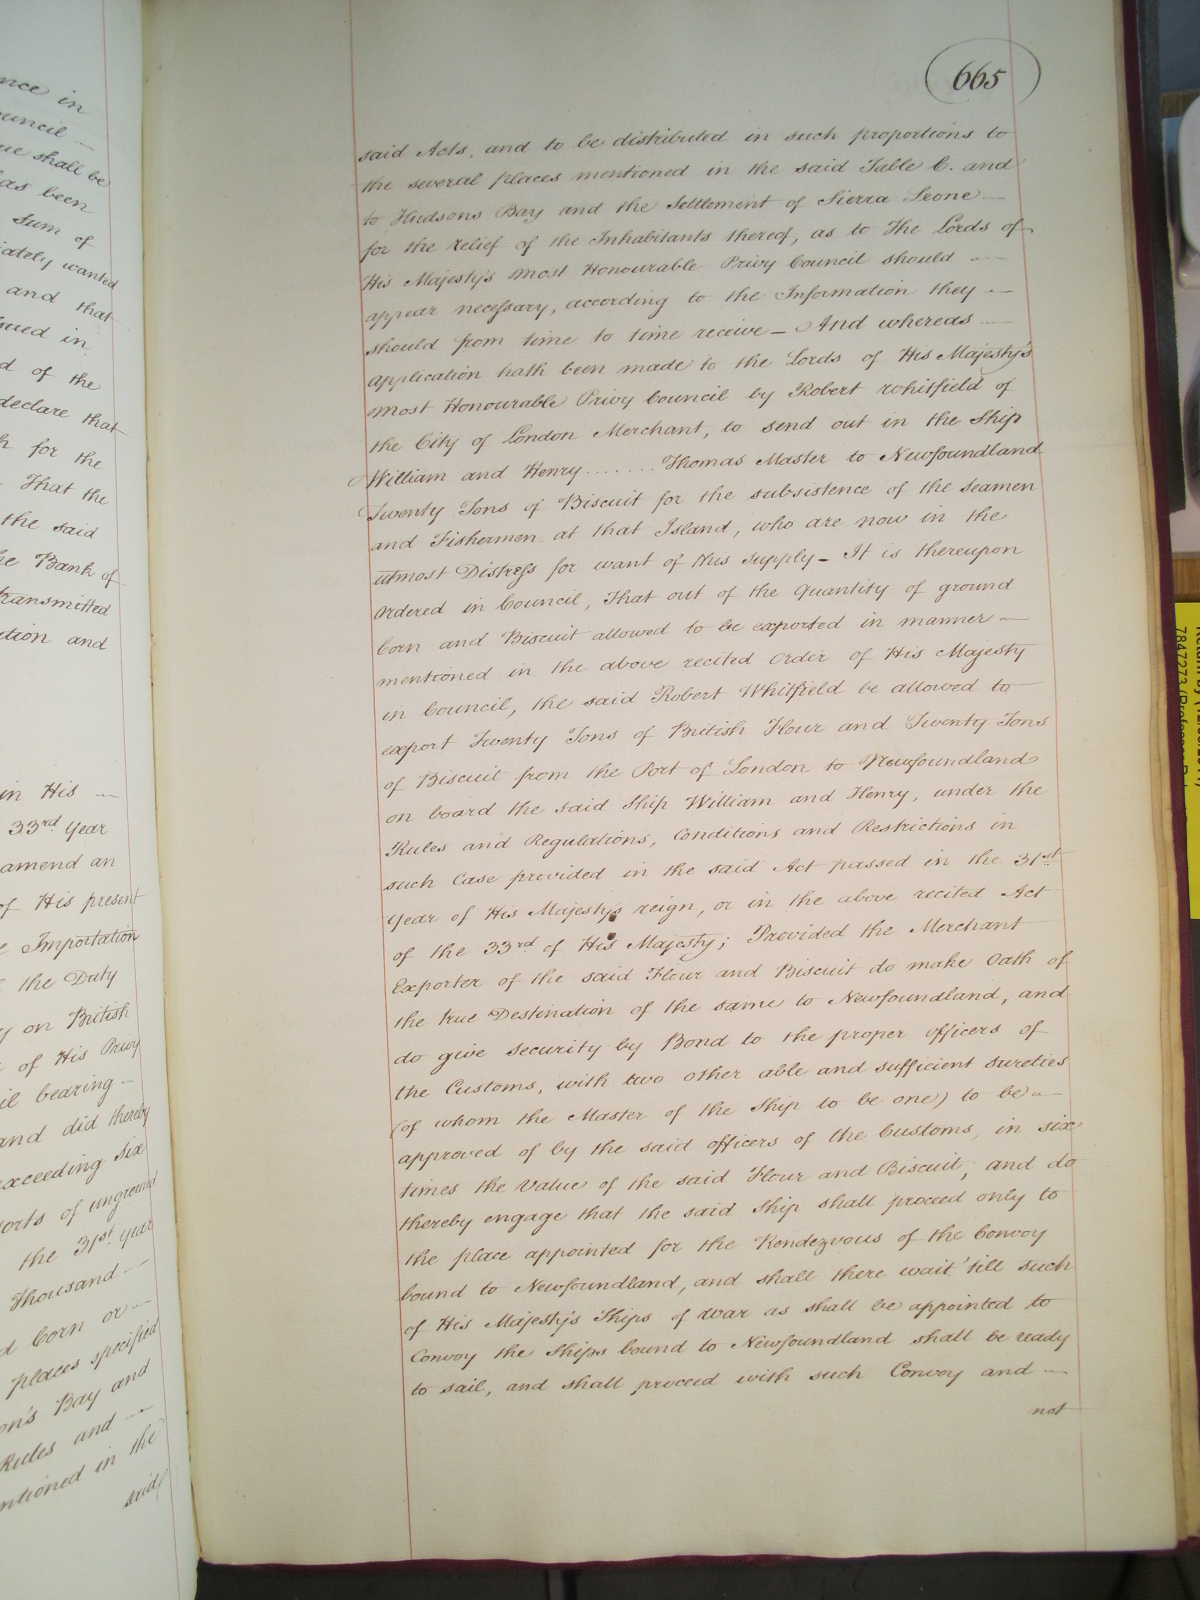 nce in
ouncil
ue shall be
has been
sum of
iately wanted
and that
sued in
d of the
declare that
h for the
That the
the said
he Bank of
transmitted
ution and
in His
33rd Year
amend an
of His present
e Importation
f the Duty
y on British
of His Privy
il bearing
and did thereby
exceeding six
sorts of unground
the 31st Year
Thousand
d Corn or
places specified
on's Bay and
Rules and
ntioned in the
said
665
said Acts, and to be distributed in such proportions to
the several places mentioned in the said Table C. and
to Hudsons Bay and the Settlement of Sierra Leone
for the relief of the Inhabitants thereof, as to The Lords of
His Majesty's most Honourable Privy Council should
appear necessary, according to the Information they
should from time to time receive – And whereas
application hath been made to the Lords of His Majesty's
most Honourable Privy Council by Robert Whitfield of
the City of London Merchant, to send out in the Ship
William and Henry ....... Thomas Master to Newfoundland
Twenty Tons of Biscuit for the subsistence of the Seamen
and Fishermen at that Island, who are now in the
utmost Distress for want of this supply – It is thereupon
Ordered in Council, That out of the Quantity of ground
Corn and Biscuit allowed to be exported in manner
mentioned in the above recited Order of His Majesty
in Council, the said Robert Whitfield be allowed to
export Twenty Tons of British Flour and Twenty Tons
of Biscuit from the Port of London to Newfoundland
on board the said Ship William and Henry, under the
Rules and Regulations, Conditions and Restrictions in
such Case provided in the said Act passed in the 31st
Year of His Majesty's reign, or in the above recited Act
of the 33rd of His Majesty; Provided the Merchant
Exporter of the said Flour and Biscuit do make Oath of
the true Destination of the same to Newfoundland, and
do give security by Bond to the proper officers of
the Customs, with two other able and sufficient sureties
(of whom the Master of the Ship to be one) to be
approved of by the said officers of the Customs, in six
times the Value of the said Flour and Biscuit, and do
thereby engage that the said Ship shall proceed only to
the place appointed for the Rendezvous of the Convoy
bound to Newfoundland, and shall there wait 'till such
of His Majesty's Ships of War as shall be appointed to
Convoy the Ships bound to Newfoundland shall be ready
to sail, and shall proceed with such Convoy and
not
7847273